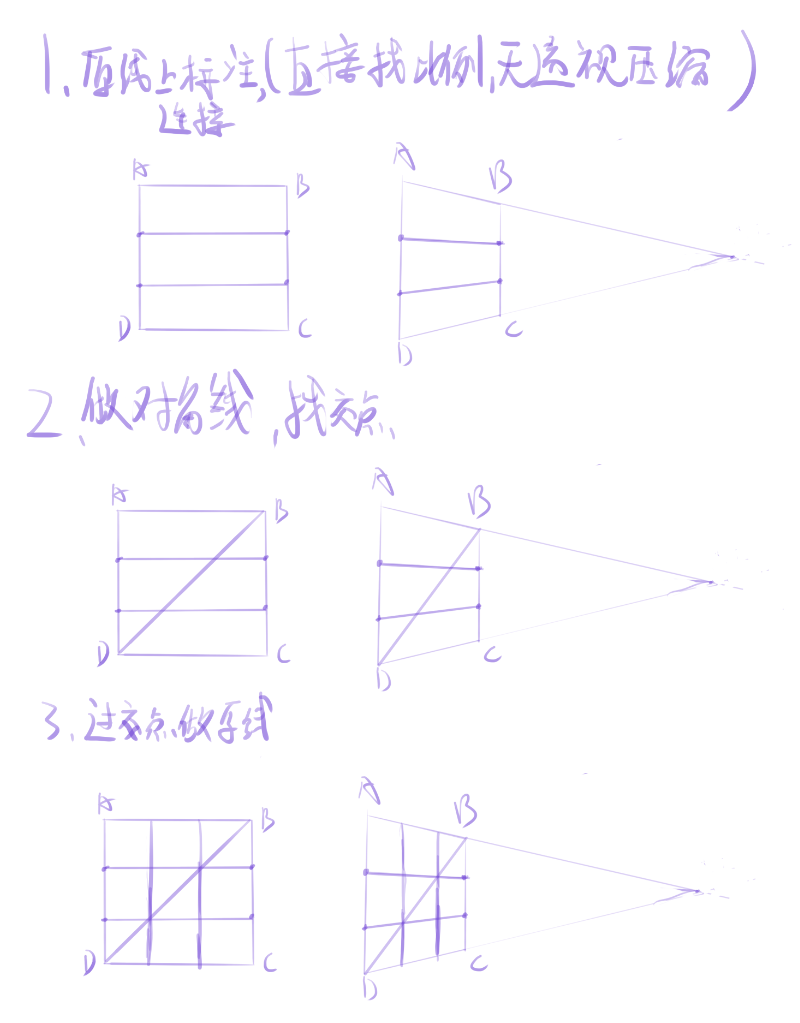 1.原线上标注,(直接找比例,无透视压缩)
连接
A
B
D
C
A
B
D
C
2.做对角线,找交点.
A
B
D
C
A
B
D
C
3.过交点做原线
A
B
D
C
A
B
D
C